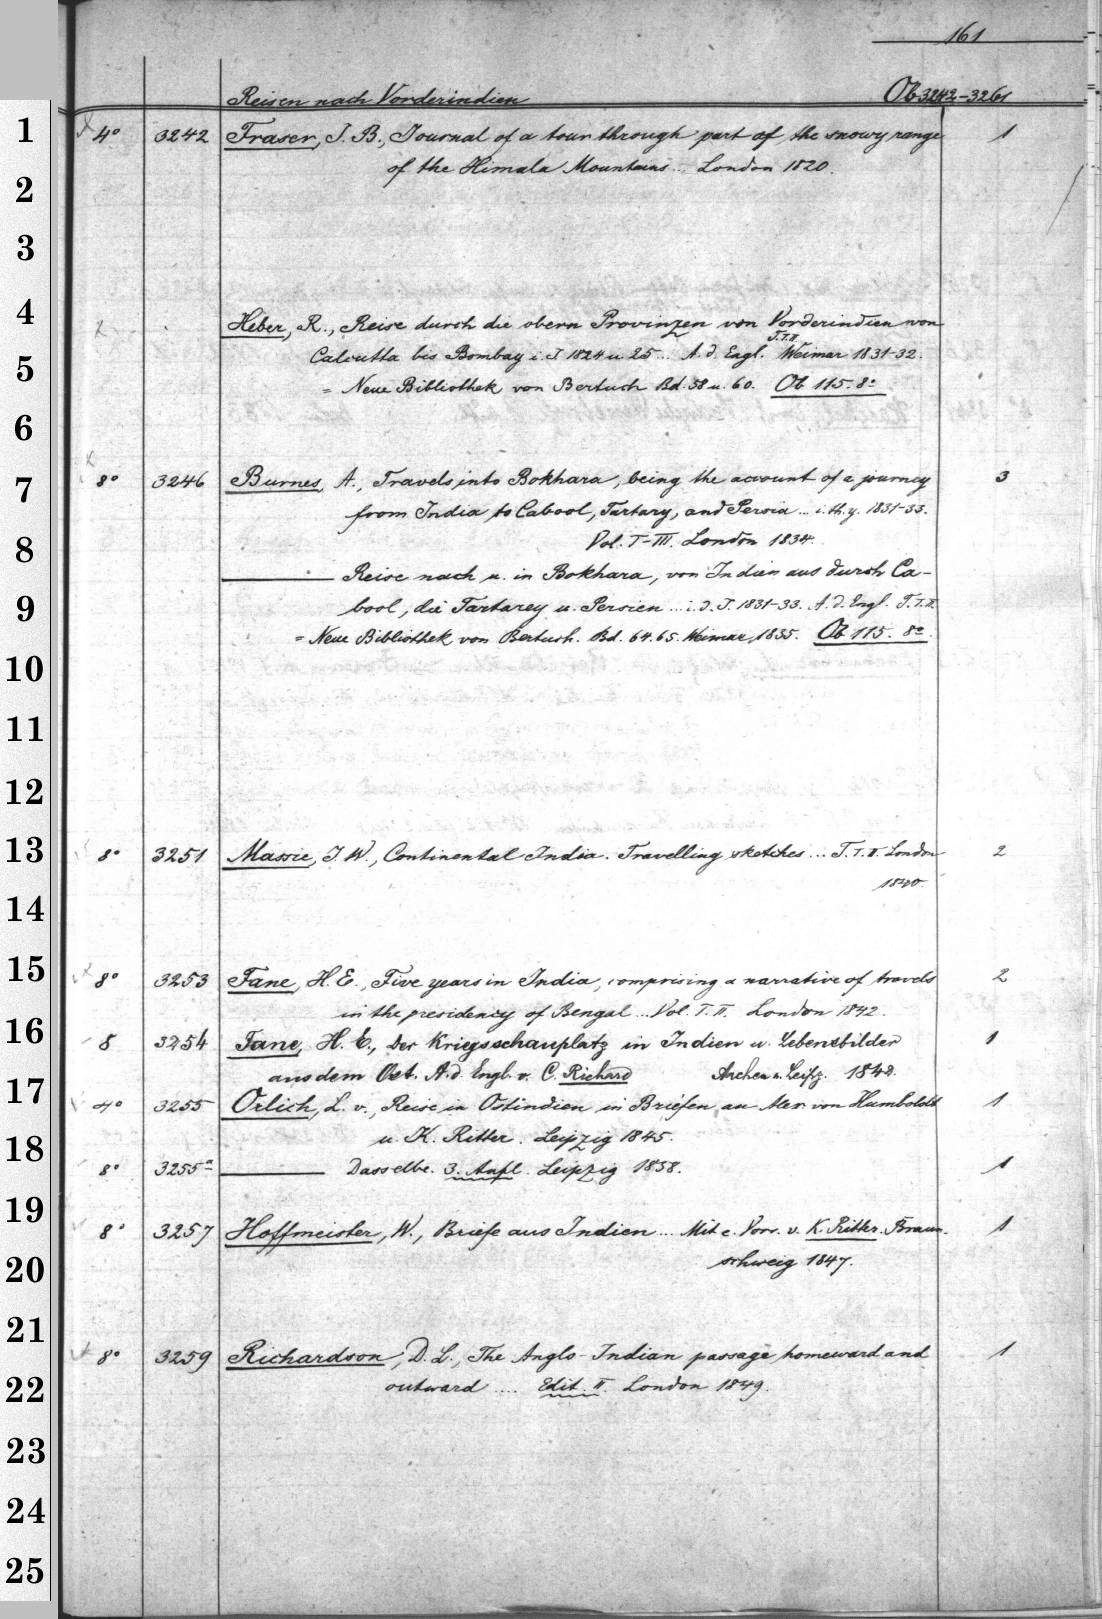 161
Reisen nach Vorderindien Ob 3242-3261
1 4° 3242 Fraser, J. B., Journal of a tour through part of the snowy range 1
2 of the Himala Mountains... London 1820.
3
4 Heber, R., Reise durch die obern Provinzen von Vorderindien von
5 Calcutta bis Bombay i. J. 1824 u. 25... A. d. Engl. T. I. II. Weimar 1831-32.
6 = Neue Bibliothek von Bertuch Bd. 58 u. 60. Ob 115. 8°
7 8° 3246 Burnes, A., Travels into Bokhara, being the account of a journey 3
from India to Cabool, Tartary, and Persia... i. th. y. 1831-33.
8 Vol. I-III. London 1834.
——— Reise nach u. in Bokhara, von Indien aus durch Ca-
9 bool, die Tartarey u. Persien... i. d. J. 1831-33. A. d. Engl. T. I. II.
= Neue Bibliothek von Bertuch. Bd. 64. 65. Weimar 1835. Ob 115. 8°.
10
11
12
13 8° 3251 Massie, J. W., Continental India. Travelling sketches... T. I. II. London 2
1840.
14
15 8° 3253 Fane, H. E., Five years in India, comprising a narrative of travels 2
in the presidency of Bengal... Vol. I. II. London 1842.
16 8 3254 Fane, H. E., Der Kriegsschauplatz in Indien u. Lebensbilder 1
aus dem Ost. A. d. Engl. v. C. Richard Aachen u. Leipz. 1842.
17 4° 3255 Orlich, L. v., Reise in Ostindien in Briefen an Alex. von Humboldt 1
u. K. Ritter. Leipzig 1845.
18 8° 3255a ——— Dasselbe. 3. Aufl. Leipzig 1858. 1
19 8° 3257 Hoffmeister, W., Briefe aus Indien... Mit e. Vorr. v. K. Ritter. Braun- 1
20 schweig 1847.
21 8° 3259 Richardson, D. L., The Anglo-Indian passage homeward and 1
22 outward.... Edit. II. London 1849.
23
24
25